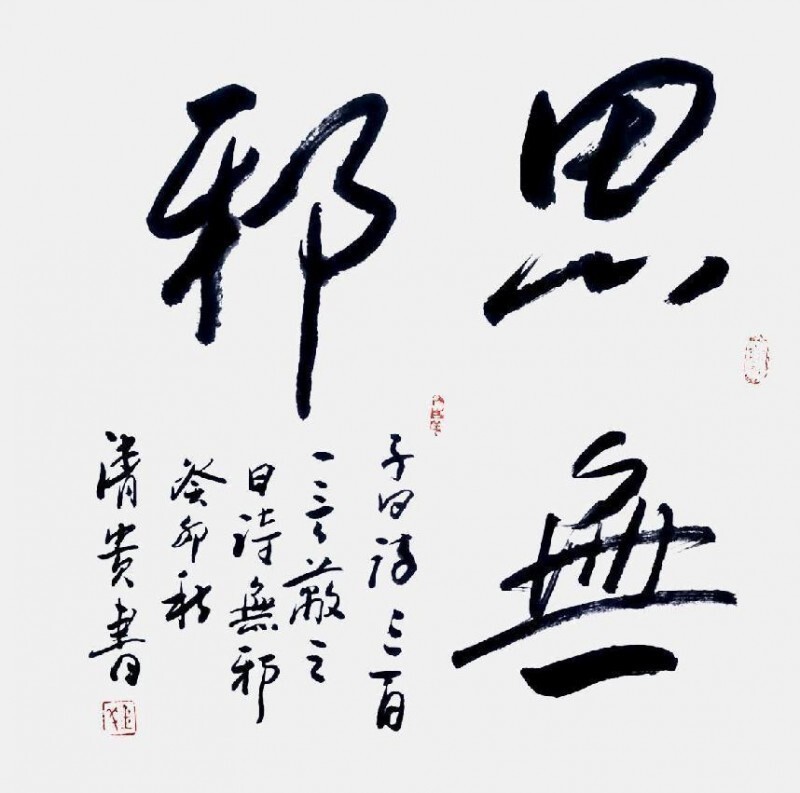 思無
邪
子曰詩三百
一言以蔽之
曰詩無邪
癸卯秋
清贵書